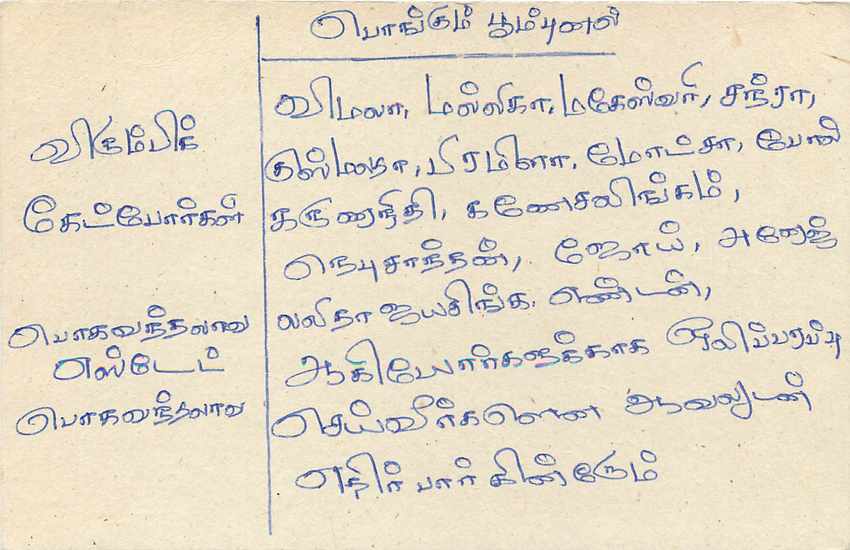 பொங்கும் பூம்புனல்
விரும்பிக்
கேட்போர்கள்
பொகவந்தலாவ
எஸ்டேட்
பொகவந்தலாவ
விமலா, மல்லிகா, மகேஸ்வரி, சந்ரா,
பிரமிளா, மோட்சா,
கருணநிதி, கணேசலிங்கம்,
நெபுசாந்தன், ஜோய்,
லலிதா ஜயசிங்க. எண்டன்,
ஆகியோர்களுக்காக ஒலிப்பரப்பு
செய்வீர்களென ஆவலுடன்
எதிர் பார் கின்றோம்